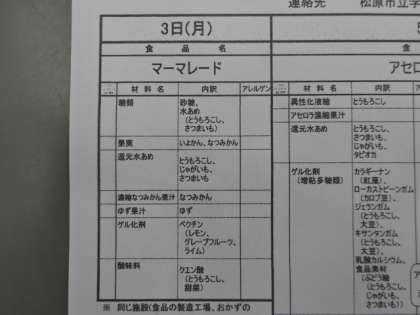 連絡先 松原市立学
3日(月)
食 品 名
マーマレード
材 料 名 内訳 アレルゲン
糖類 砂糖、
水あめ
(とうもろこし、
さつまいも)
果実 いよかん、なつみかん
還元水あめ とうもろこし、
じゃがいも、
さつまいも
濃縮なつみかん果汁 なつみかん
ゆず果汁 ゆず
ゲル化剤 ペクチン
(レモン、
グレープフルーツ、
ライム)
酸味料 クエン酸
(とうもろこし、
甜菜)
※ 同じ施設(食品の製造工場、おかずの
食 品
アセロ
材 料 名 内訳
異性化液糖 とうもろこし
アセロラ濃縮果汁
還元水あめ とうもろこし、
さつまいも、
じゃがいも、
タピオカ
ゲル化剤 カラギーナン
(増粘多糖類) (紅藻)、
ローカストビーンガム
(カロブ豆)、
ジェランガム
(とうもろこし、
大豆)、
キサンタンガム
(とうもろこし、
大豆)、
乳酸カルシウム、
食品素材
(ぶどう糖
(とうもろこし、
じゃがいも、